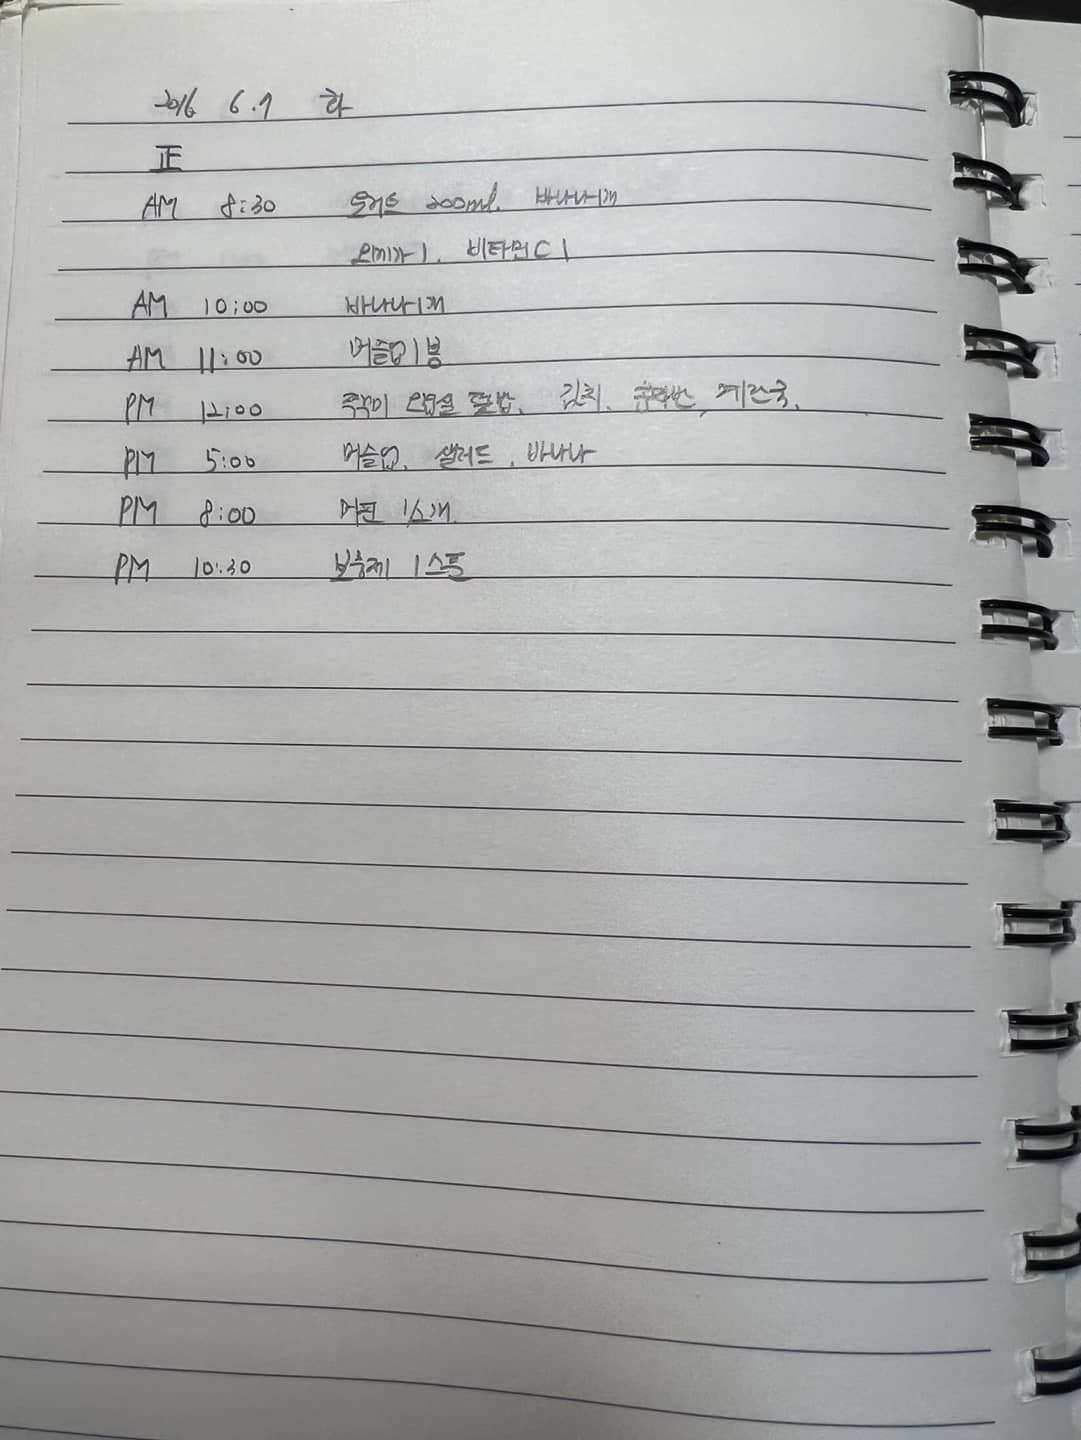 2016 6.7 화
正
AM 8:30 요거트 200ml. 바나나1개
오메가1. 비타민C 1
AM 10:00 바나나1개
AM 11:00 머슬업1봉
PM 12:00 쭈꾸미 덮밥, 김치, 계란국.
PM 5:00 머슬업, 샐러드, 바나나
PM 8:00 머핀 1/2개
PM 10:30 보충제 1스푼